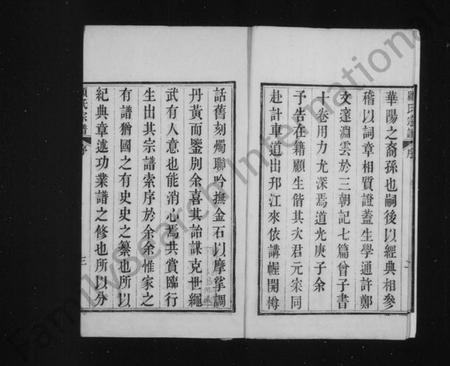 華陽之裔孫也嗣後以經典相參
稽以詞章相質證蓋生學通許鄭
文達淵雲於三朝記七篇曾子書
十卷用力尤深焉道光庚子余
予告在籍顧生偕其次君元寀同
赴計車道出邗江來依講幄開樽
話舊刻燭聯吟撫金石以摩挲調
丹黃而鑒別余喜其詒謀克世繩
武有人意也能消心焉共賞臨行
生出其宗譜索序於余余惟家之
有譜猶國之有史史之纂也所以
紀典章述功業譜之修也所以分
顧氏宗譜 序 三
顧氏宗譜 序
FamilySearch International